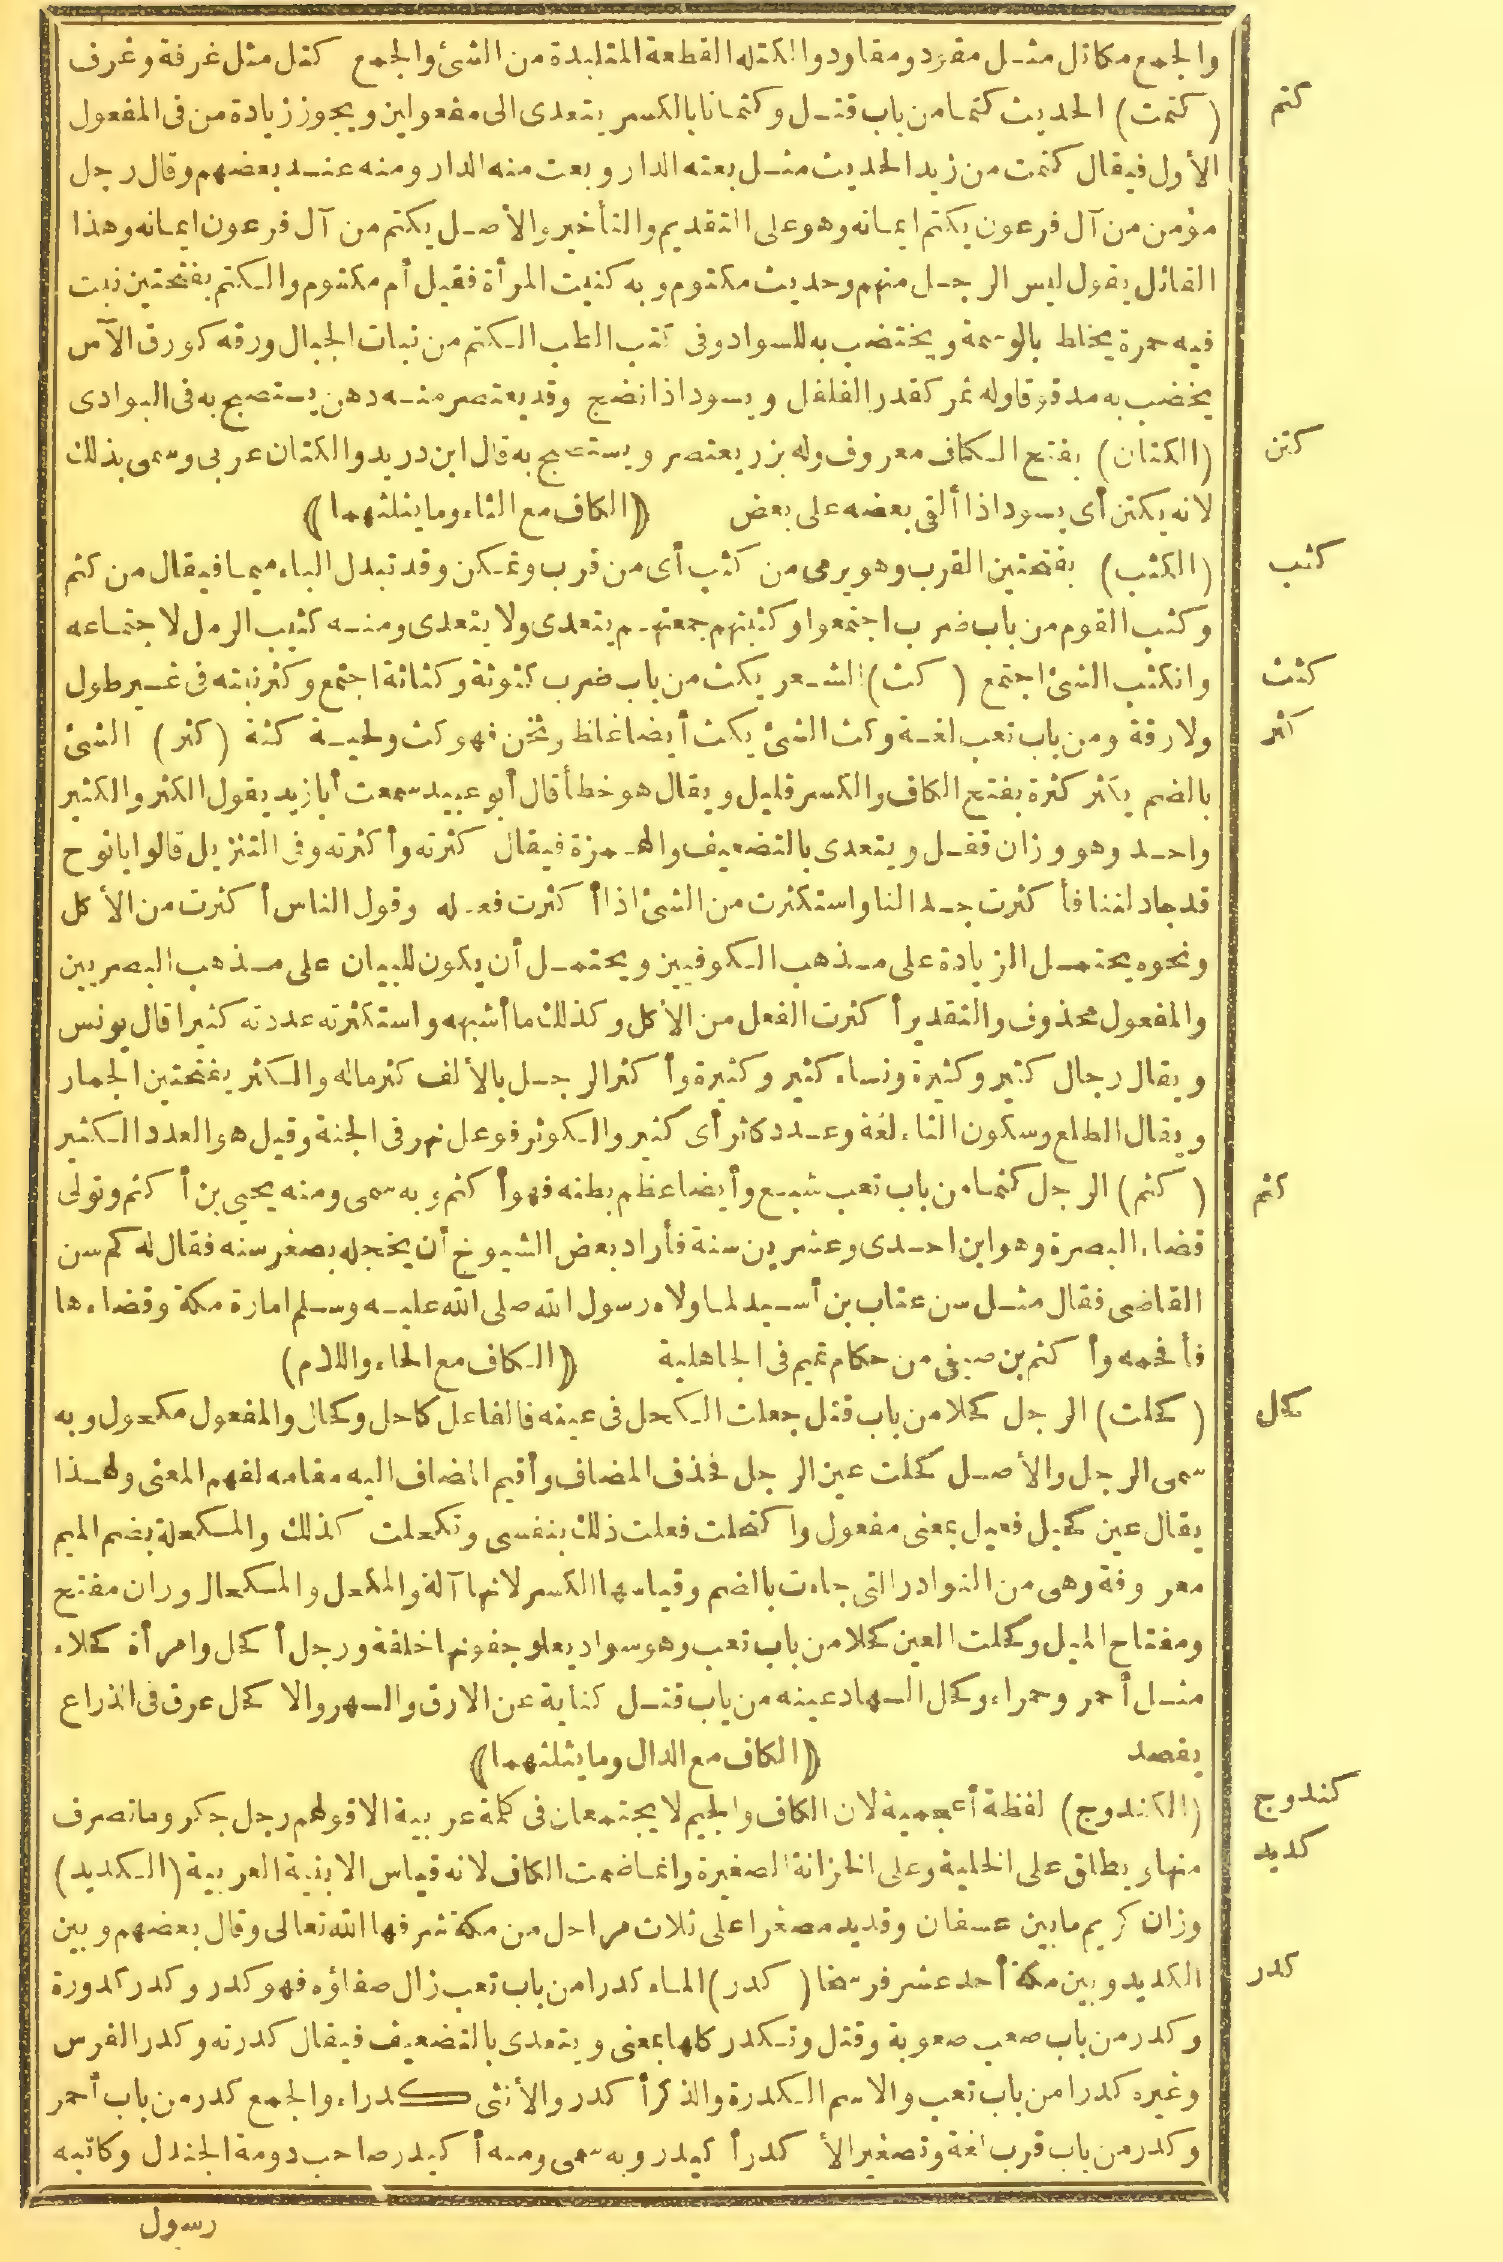 والجمع مكاتل مثل مقود ومقاود والكتلة القطعة المتلبدة من الشئ والجمع كتل مثل غرفة وغرف
كتم
(كتمت) الحديث كتما من باب قتل وكتمانا بالكسر يتعدى الى مفعولين ويجوز زيادة من فى المفعول
الأول فيقال كتمت من زيد الحديث مثل بعته الدار وبعت منه الدار ومنه عند بعضهم وقال رجل
مؤمن من آل فرعون يكتم ايمانه وهو على التقديم والتأخير والأصل يكتم من آل فرعون ايمانه وهذا
القائل يقول ليس الرجل منهم وحديث مكتوم وبه كنيت المرأة فقيل أم مكتوم والكتم بفتحتين نبت
فيه حمرة يخلط بالوسمة ويختضب به للسواد وفى كتب الطب الكتم من نبات الجبال ورقه كورق الآس
يخضب به مدقوقا وله ثمر كقدر الفلفل ويسود اذا نضج وقد يعتصر منه دهن يستصبح به فى البوادى
كتن
(الكتان) بفتح الكاف معروف وله بزر يعتصر ويستصبح به قال ابن دريد والكتان عربى وسمى بذلك
لانه يكتن أى يسود اذا ألقى بعضه على بعض (الكاف مع الثاء وما يثلثهما)
كثب
(الكثب) بفتحتين القرب وهو يرمى من كثب أى من قرب وتمكن وقد تبدل الباء ميما فيقال من كثم
وكثب القوم من باب ضرب اجتمعوا وكثبتهم جمعتهم يتعدى ولا يتعدى ومنه كثيب الرمل لاجتماعه
كثث
وانكثب الشئ اجتمع (كث) الشعر يكث من باب ضرب كثوثة وكثاثة اجتمع وكثر نبته فى غير طول
كثر
ولا رقة ومن باب تعب لغة وكث الشئ يكث أيضا غلظ وثخن فهو كث ولحية كثة (كثر) الشئ
بالضم يكثر كثرة بفتح الكاف والكسر قليل ويقال هو خطأ قال أبو عبيد سمعت أبا زيد يقول الكثر والكثير
واحد وهو وزان قفل ويتعدى بالتضعيف والهمزة فيقال كثرته وأكثرته وفى التنزيل قالوا يا نوح
قد جادلتنا فأكثرت جدالنا واستكثرت من الشئ اذا أكثرت فعله وقول الناس أكثرت من الأكل
ونحوه يحتمل الزيادة على مذهب الكوفيين ويحتمل أن يكون للبيان على مذهب البصريين
والمفعول محذوف والتقدير أكثرت الفعل من الأكل وكذلك ما أشبهه واستكثرته عددته كثيرا قال يونس
ويقال رجال كثير وكثيرة ونساء كثير وكثيرة وأكثر الرجل بالألف كثر ماله والكثر بفتحتين الجمار
ويقال الطلع وسكون الثاء لغة وعدد كاثر أى كثير والكوثر فوعل نهر فى الجنة وقيل هو العدد الكثير
كثم
(كثم) الرجل كثما من باب تعب شبع وأيضا عظم بطنه فهو أكثم وبه سمى ومنه يحيى بن أكثم وتولى
قضاء البصرة وهو ابن احدى وعشرين سنة فأراد بعض الشيوخ أن يخجله بصغر سنه فقال له كم سن
القاضى فقال مثل سن عتاب بن أسيد لما ولاه رسول الله صلى الله عليه وسلم امارة مكة وقضاءها
فأفحمه وأكثم بن صيفى من حكام تميم فى الجاهلية (الكاف مع الحاء واللام)
كحل
(كحلت) الرجل كحلا من باب قتل جعلت الكحل فى عينه فالفاعل كاحل وكحال والمفعول مكحول وبه
سمى الرجل والأصل كحلت عين الرجل فحذف المضاف وأقيم المضاف اليه مقامه لفهم المعنى ولهذا
يقال عين كحيل فعيل بمعنى مفعول واكتحلت فعلت ذلك بنفسى وتكحلت كذلك والمكحلة بضم الميم
معروفة وهى من النوادر التى جاءت بالضم وقياسها الكسر لانها آلة والمكحل والمكحال وزان مفتح
ومفتاح الميل وكحلت العين كحلا من باب تعب وهو سواد يعلو جفونها خلقة ورجل أكحل وامرأة كحلاء
مثل أحمر وحمراء وكحل السهاد عينه من باب قتل كناية عن الارق والسهر والاكحل عرق فى الذراع
يفصد (الكاف مع الدال وما يثلثهما)
كندوج
(الكندوج) لفظة أعجمية لان الكاف والجيم لا يجتمعان فى كلمة عربية الا قولهم رجل جكر وما تصرف
كديد
منها ويطلق على الخلية وعلى الخزانة الصغيرة وانما ضمت الكاف لانه قياس الابنية العربية (الكديد)
وزان كريم ما بين عسفان وقديد مصغرا على ثلاث مراحل من مكة شرفها الله تعالى وقال بعضهم وبين
كدر
الكديد وبين مكة أحد عشر فرسخا (كدر) الماء كدرا من باب تعب زال صفاؤه فهو كدر وكدر كدورة
وكدر من باب صعب صعوبة وقتل وتكدر كلها بمعنى ويتعدى بالتضعيف فيقال كدرته وكدر الفرس
وغيره كدرا من باب تعب والاسم الكدرة والذكر أكدر والأنثى كدراء والجمع كدر من باب أحمر
وكدر من باب قرب لغة وتصغير الأكدر أكيدر وبه سمى ومنه أكيدر صاحب دومة الجندل وكاتبه
رسول